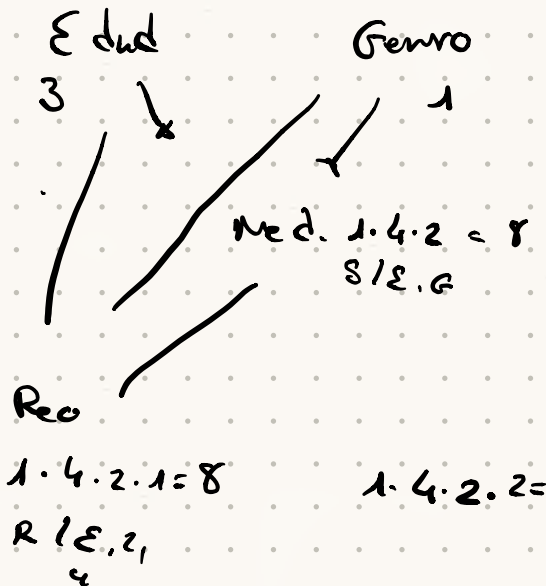 Edad Genro
3 1
Med. 1.4.2 = 8
S/E.G
Reo
1.4.2.1=8 1.4.2.2=
R/E,2,
4